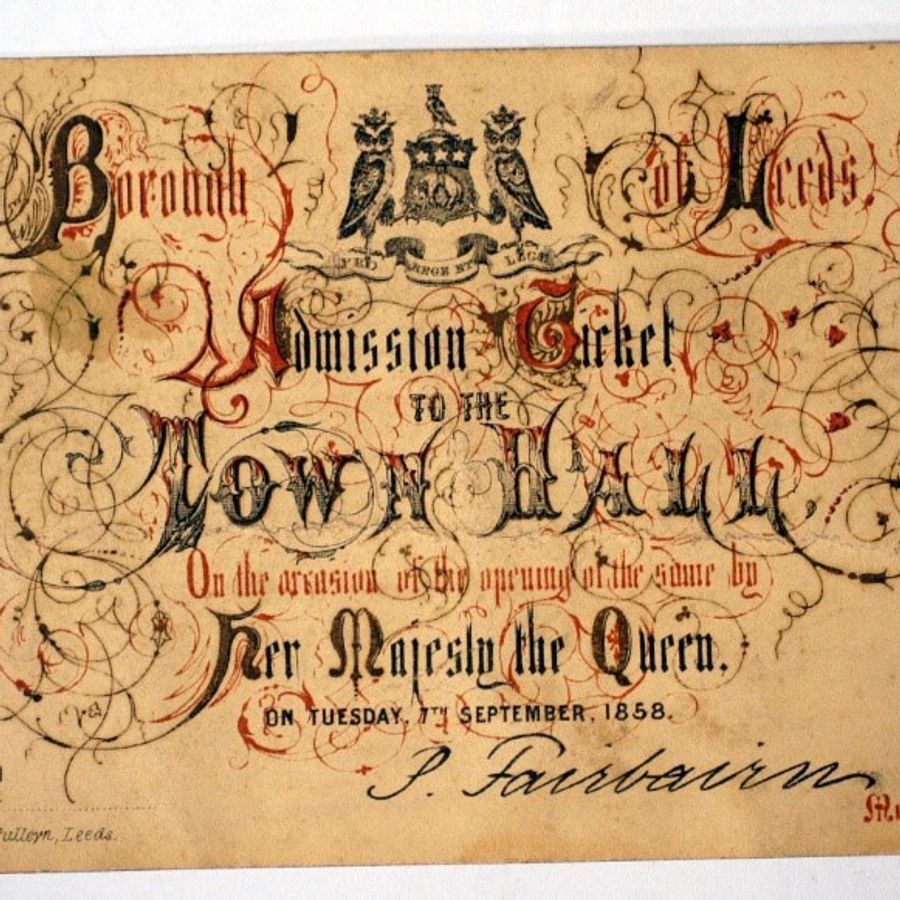 Borough of Leeds,
PRO REGE ET LEGE
Admission Ticket
TO THE
TOWN HALL,
On the occasion of the opening of the same by
Her Majesty the Queen.
ON TUESDAY, 7TH SEPTEMBER, 1858.
P. Fairbairn
Leeds.